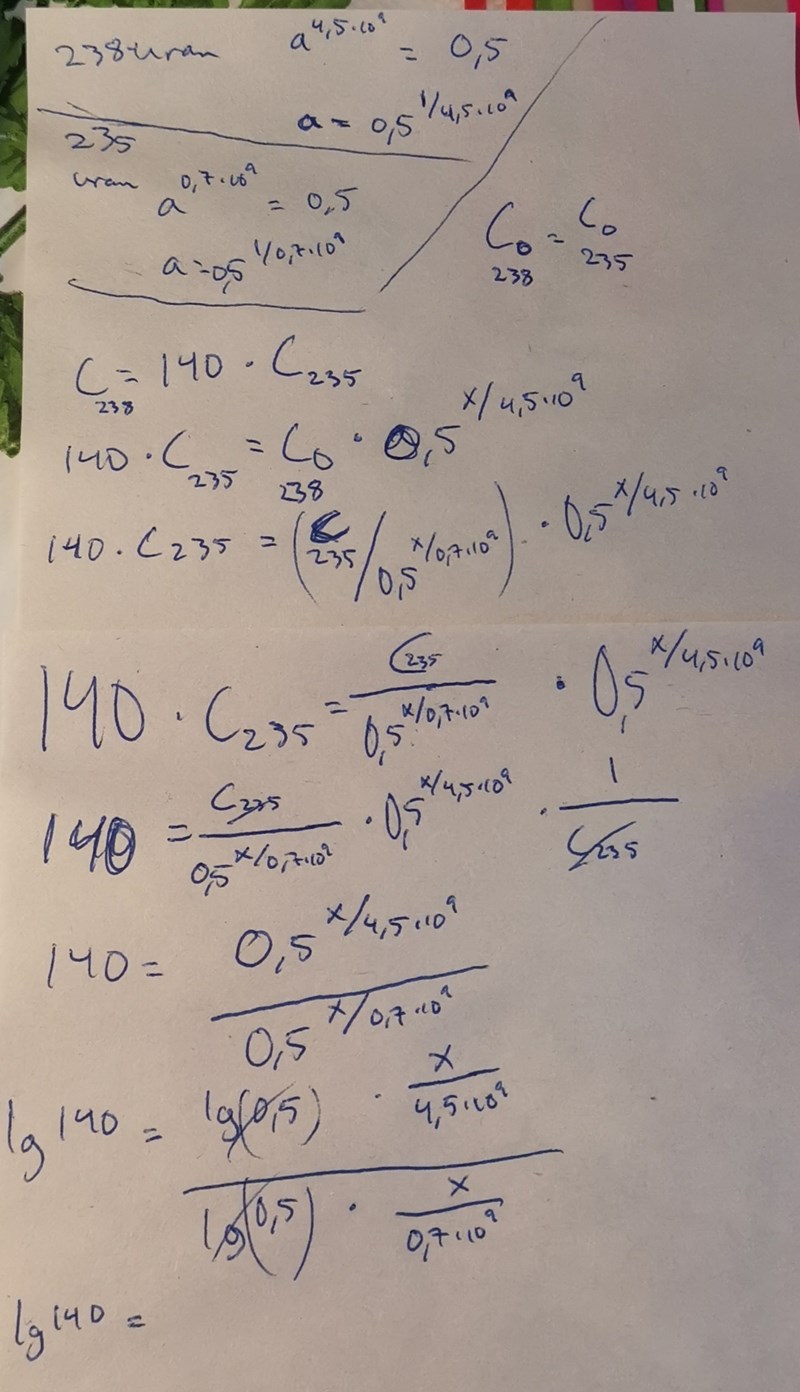 238 uran a^4,5·10^9 = 0,5
a = 0,5^1/4,5·10^9
235
uran a^0,7·10^9 = 0,5
a = 0,5^1/0,7·10^9
C₀ 238 = C₀ 235
C 238 = 140 · C 235
140 · C 235 = C₀ 238 · 0,5^x/4,5·10^9
140 · C 235 = (C 235 / 0,5^x/0,7·10^9) · 0,5^x/4,5·10^9
140 · C 235 = C 235 / 0,5^x/0,7·10^9 · 0,5^x/4,5·10^9
140 = C 235 / 0,5^x/0,7·10^9 · 0,5^x/4,5·10^9 · 1 / C 235
140 = 0,5^x/4,5·10^9 / 0,5^x/0,7·10^9
lg 140 = lg(0,5) · x / 4,5·10^9 / lg(0,5) · x / 0,7·10^9
lg 140 =